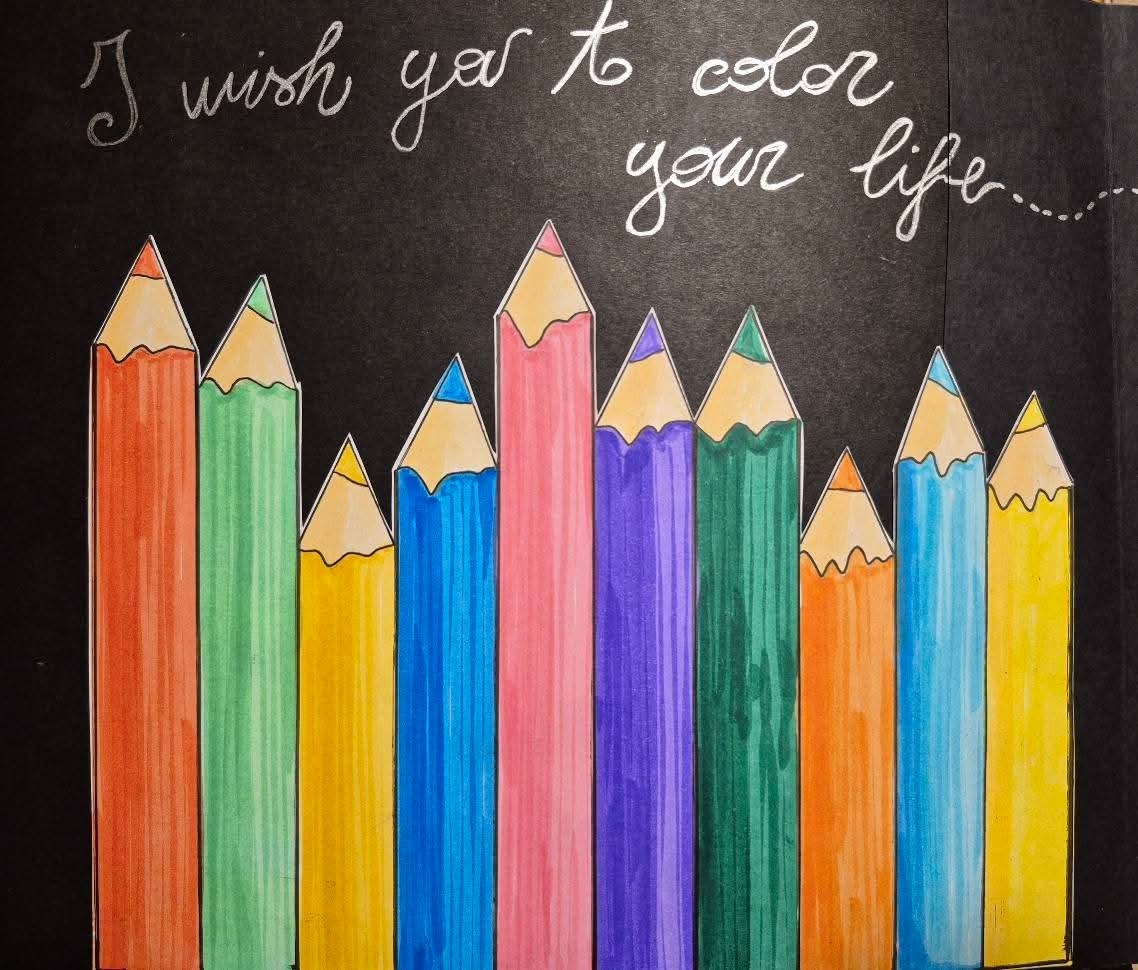 I wish you to color
your life